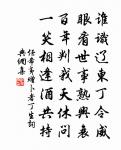 誰識遼東丁令威
眼看世事熟興衰
百年判我天休問
一笑相逢酒共持
任希夷贈卜者丁生詞
典佣集